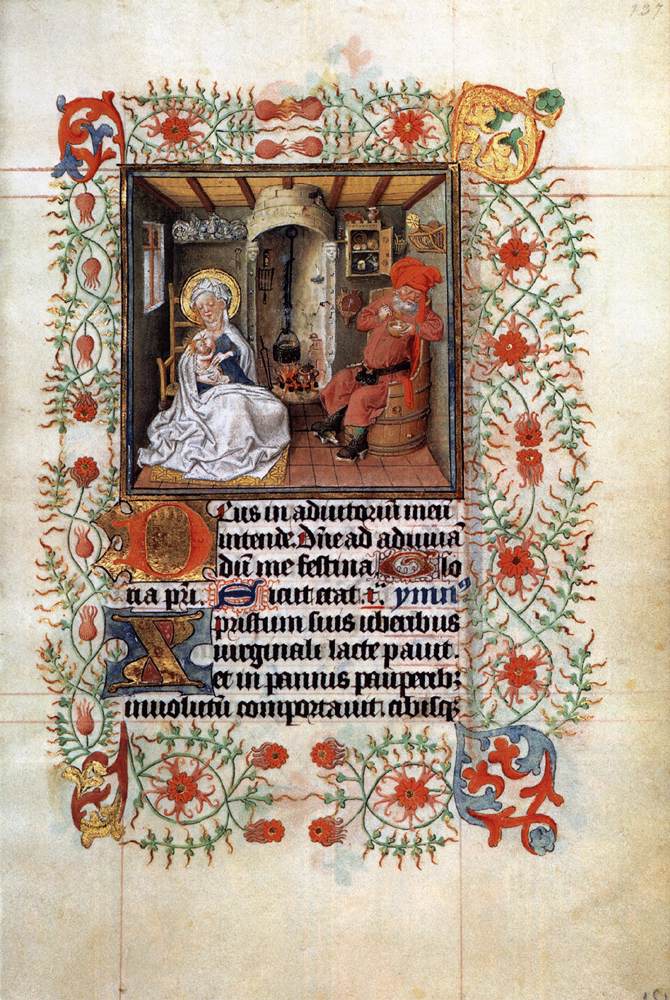 137
Deus in adiutoriū meū
intende. Dñe ad adiuuā
dū me festina Glo
ria pri. Sicut erat. ymnꝰ
Xpristum suis uberibus
uirginali lacte pauit.
et in pannis pauperibꝫ
inuolutū comportauit cibisqꝫ